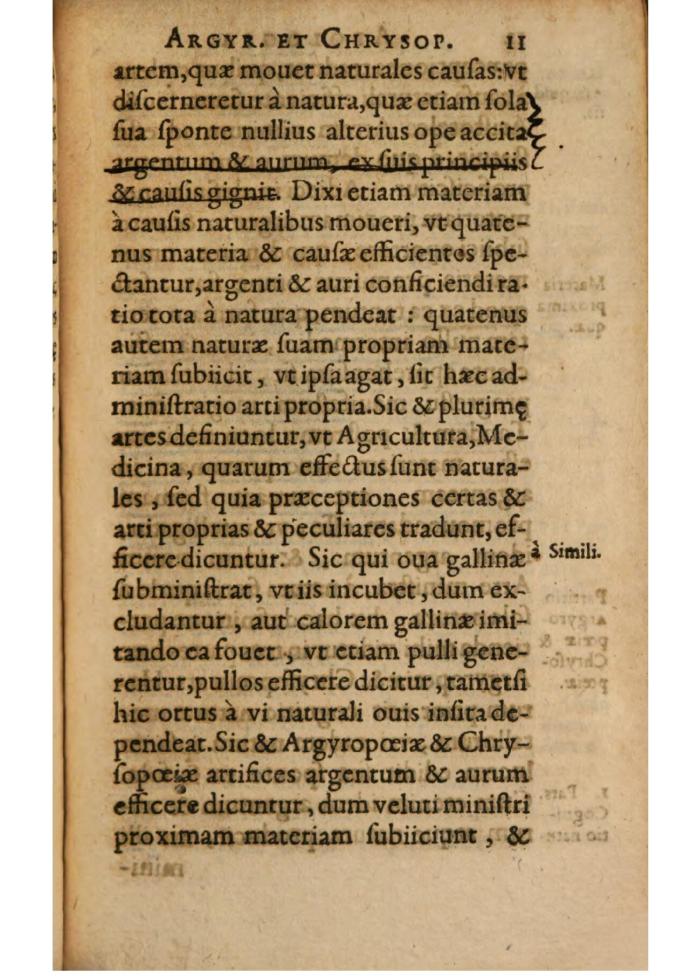 ARGYR. ET CHRYSOP. 11
artem,quæ mouet naturales cauſas:vt
diſcerneretur à natura,quæ etiam ſola
ſua ſponte nullius alterius ope accita
argentum & aurum, ex ſuis principiis
& cauſis gignit. Dixi etiam materiam
à cauſis naturalibus moueri, vt quate-
nus materia & cauſæ efficientes ſpe-
ctantur,argenti & auri conficiendi ra-
tio tota à natura pendeat : quatenus
autem naturæ ſuam propriam mate-
riam ſubiicit, vt ipſa agat, ſit hæc ad-
miniſtratio arti propria.Sic & plurimę
artes definiuntur, vt Agricultura,Me-
dicina, quarum effectus ſunt natura-
les, ſed quia præceptiones certas &
arti proprias & peculiares tradunt, ef-
ficere dicuntur. Sic qui oua gallinæ
à Simili.
ſubminiſtrat, vt iis incubet, dum ex-
cludantur, aut calorem gallinæ imi-
tando ea fouet, vt etiam pulli gene-
rentur,pullos efficere dicitur, tametſi
hic ortus à vi naturali ouis inſita de-
pendeat.Sic & Argyropœiæ & Chry-
ſopœiæ artifices argentum & aurum
efficere dicuntur, dum veluti miniſtri
proximam materiam ſubiiciunt, &